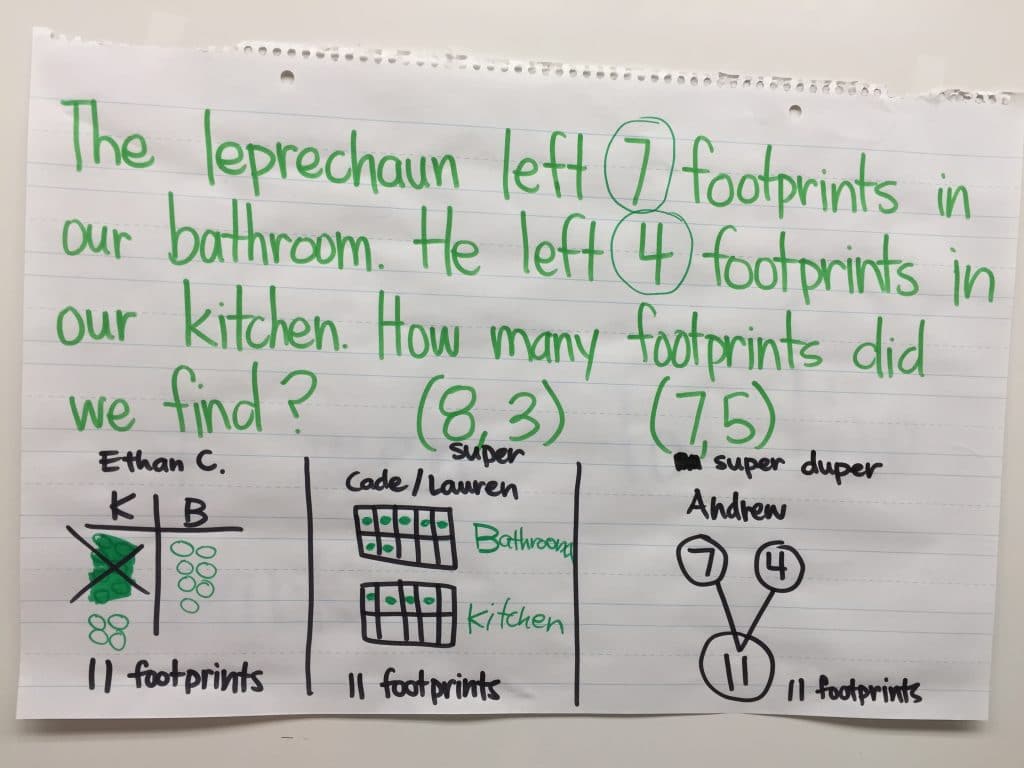 The leprechaun left 7 footprints in
our bathroom. He left 4 footprints in
our kitchen. How many footprints did
we find? (8,3) (7,5)
Ethan C.
K B
11 footprints
super
Cade/Lauren
Bathroom
Kitchen
11 footprints
super duper
Andrew
7 4
11
11 footprints